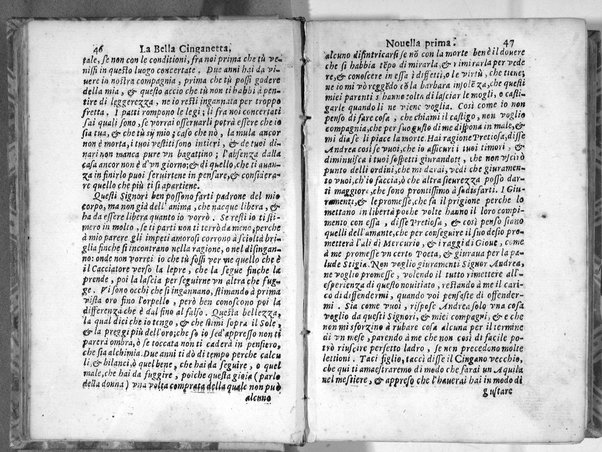 46 La Bella Cinganetta,
tale, se non con le conditioni, fra noi prima che tù ve-
nissi in questo luogo concertate. Due anni hai da vi-
uere in nostra compagnia, prima che tù possi godere
della mia, & questo acciò che tù non ti habbi à pen-
tire di leggerezza, ne io resti ingannata per troppo
fretta. I patti rompono le leggi; li frà noi concertati
sai quali sono, se vorrai osseruarli potrà essere che io
sia tua, & che tù sij mio; caso che nò, la mula ancor
non è morta, i tuoi vestiti sono intieri, & de' tuoi di-
nari non manca pure vn bagattino; l'absenza dalla
casa ancor non è d'vn giorno; & di quello, che ti auan-
za in finirlo puoi seruirtene in pensare, & considera-
re quello che più ti si apartiene.
Questi Signori ben possono farti padrone del mio
corpo, ma non già dell'anima, che nacque libera, &
ha da essere libera quanto io vorrò. Se resti io ti sti-
merò in molto, se ti parti non ti terrò da meno, perche
à mio parere gli impeti amorosi corrono à sciolta bri-
glia finche si incontrano nella ragione, o nel disingan-
no: onde non vorrei io che tù fossi ver me quello che è
il Cacciatore verso la lepre, che la segue finche la
prende, poi la lascia per seguirne vn altra che fug-
ge. Vi sono occhi che si ingannano, stimando à prima
vista oro fino l'orpello, però ben conoscono poi la
differenza che è dal fino al falso. Questa bellezza,
la qual dici che io tengo, & che stimi sopra il Sole,
& la preggi più dell'oro, che sò io se d'appresso non ti
parerà ombra, & se toccata non ti caderà in pensiero,
che sia alchimia. Due anni ti dò di tempo perche calcu
li, & bilanci, ò quel bene, che hai da seguire, o quel
male, che hai da fuggire, poiche questa gioia (parlo
della donna) vna volta comprata della quale non può
alcuno
Nouella prima. 47
alcuno disintricarsi se nò con la morte ben è il douere
che si habbia tēpo di mirarla, & rimirarla, & per ve-
dere, & conoscere in essa i diffetti, ò le virtù, che tiene;
ne io mi vò reggēdo cō la barbara insolēza, che questi
miei parenti s'hanno tolta di lasciar le mogli, o casti-
garle quando li ne viene voglia. Così come io non
penso di far cosa, che chiami il castigo, non voglio
compagnia, che per suo gusto di me dispona in male, &
mi dia se li piace la morte. Hai ragione Pretiosa, disse
Andrea così se vuoi, che io assicuri i tuoi timori, &
diminuisca i tuoi sospetti giurandoti, che non vscirò
punto delli ordini, che mi darai, vedi che giuramen-
to vuoi, ch'io faccia, ò che altra sicurezza posso dar-
ti maggiori, che sono prontissimo à sodisfarti. I Giu-
ramenti, & le promesse, che fa il prigione perche lo
mettano in libertà poche volte hanno il loro compi-
mento con essa, disse Pretiosa, & così penso siano
quelli dell'amante, che per conseguire il suo desio pro-
metterà l'ali di Mercurio, & i raggi di Gioue, come
à me promesse vn certo Poeta, & giuraua per la pa-
lude Stigia. Non voglio giuramenti Signor Andrea,
ne voglio promesse, volendo il tutto rimettere all'e-
sperienza di questo nouitiato, restando à me il cari-
co di diffendermi, quando voi pensaste di offender-
mi. Sia così, rispose Andrea solo vna cosa
voglio da questi Signori, & miei compagni, & è che
non mi sforzino à rubare cosa alcuna per il termine
di vn mese, parendo à me che non così di facile po-
trò riuscire perfetto ladro, se non precedono molte
lettioni. Taci figlio, tacci disse il Cingano vecchio,
che qui ti amaestraremo di modo che sarai vn Aquila
nel mestiere, & appreso che l'hauerai hai in modo di
gustare